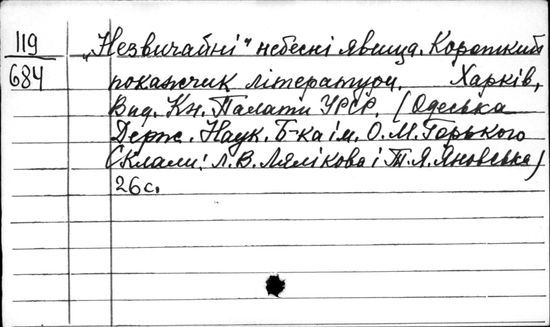 119
684
„Незвичайні" небесні явища. Короткий
покажчик літератури. Харків,
Вид. Кн. Палати УРСР. (Одеська
Держ. Наук. Б-ка ім. О. М. Горького
Склали: Л. В. Лялікова і Т. Я. Яновська)
26 с.